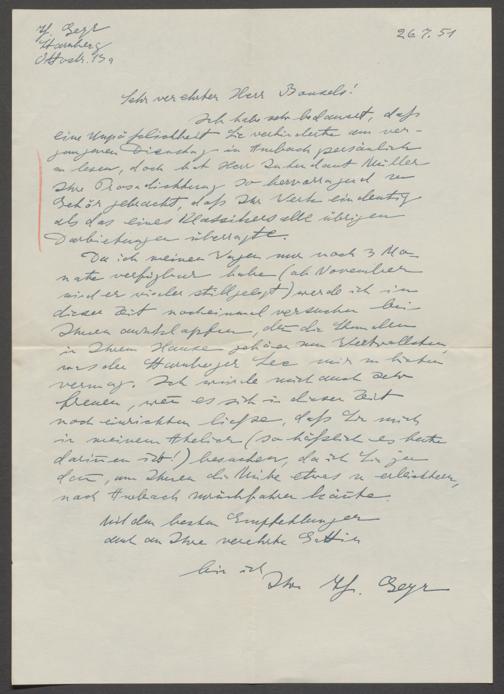 H. Geyr
Starnberg
Ottostr. 13a
26.7.51
Sehr verehrter Herr Bonsels!
Ich habe sehr bedauert, daß
eine Unpäßlichkeit Sie verhinderte am ver-
gangenen Dienstag in Ambach persönlich
zu lesen, doch hat Herr Intendant Müller
Ihre Prosadichtung so hervorragend zu
Gehör gebracht, daß Ihr Werk eindeutig
als das eines Klassikers alle übrigen
Darbietungen überragte.
Da ich meinen Wagen nur noch 3 Mo-
nate verfügbar habe (ab November
wird er wieder stillgelegt) werde ich in
dieser Zeit nocheinmal versuchen bei
Ihnen anzuklopfen, denn die Stunden
in Ihrem Hause gehören zum Wertvollsten,
was der Starnberger See mir zu bieten
vermag. Ich würde mich auch sehr
freuen, wenn es sich in dieser Zeit
noch einrichten ließe, daß Sie mich
in meinem Atelier (so häßlich es heute
darinnen ist!) besuchen, da ich Sie ja
dann, um Ihnen die Mühe etwas zu erleichtern,
nach Ambach zurückfahren könnte.
Mit den besten Empfehlungen
auch an Ihre verehrte Gattin
bin ich
Ihr H. Geyr